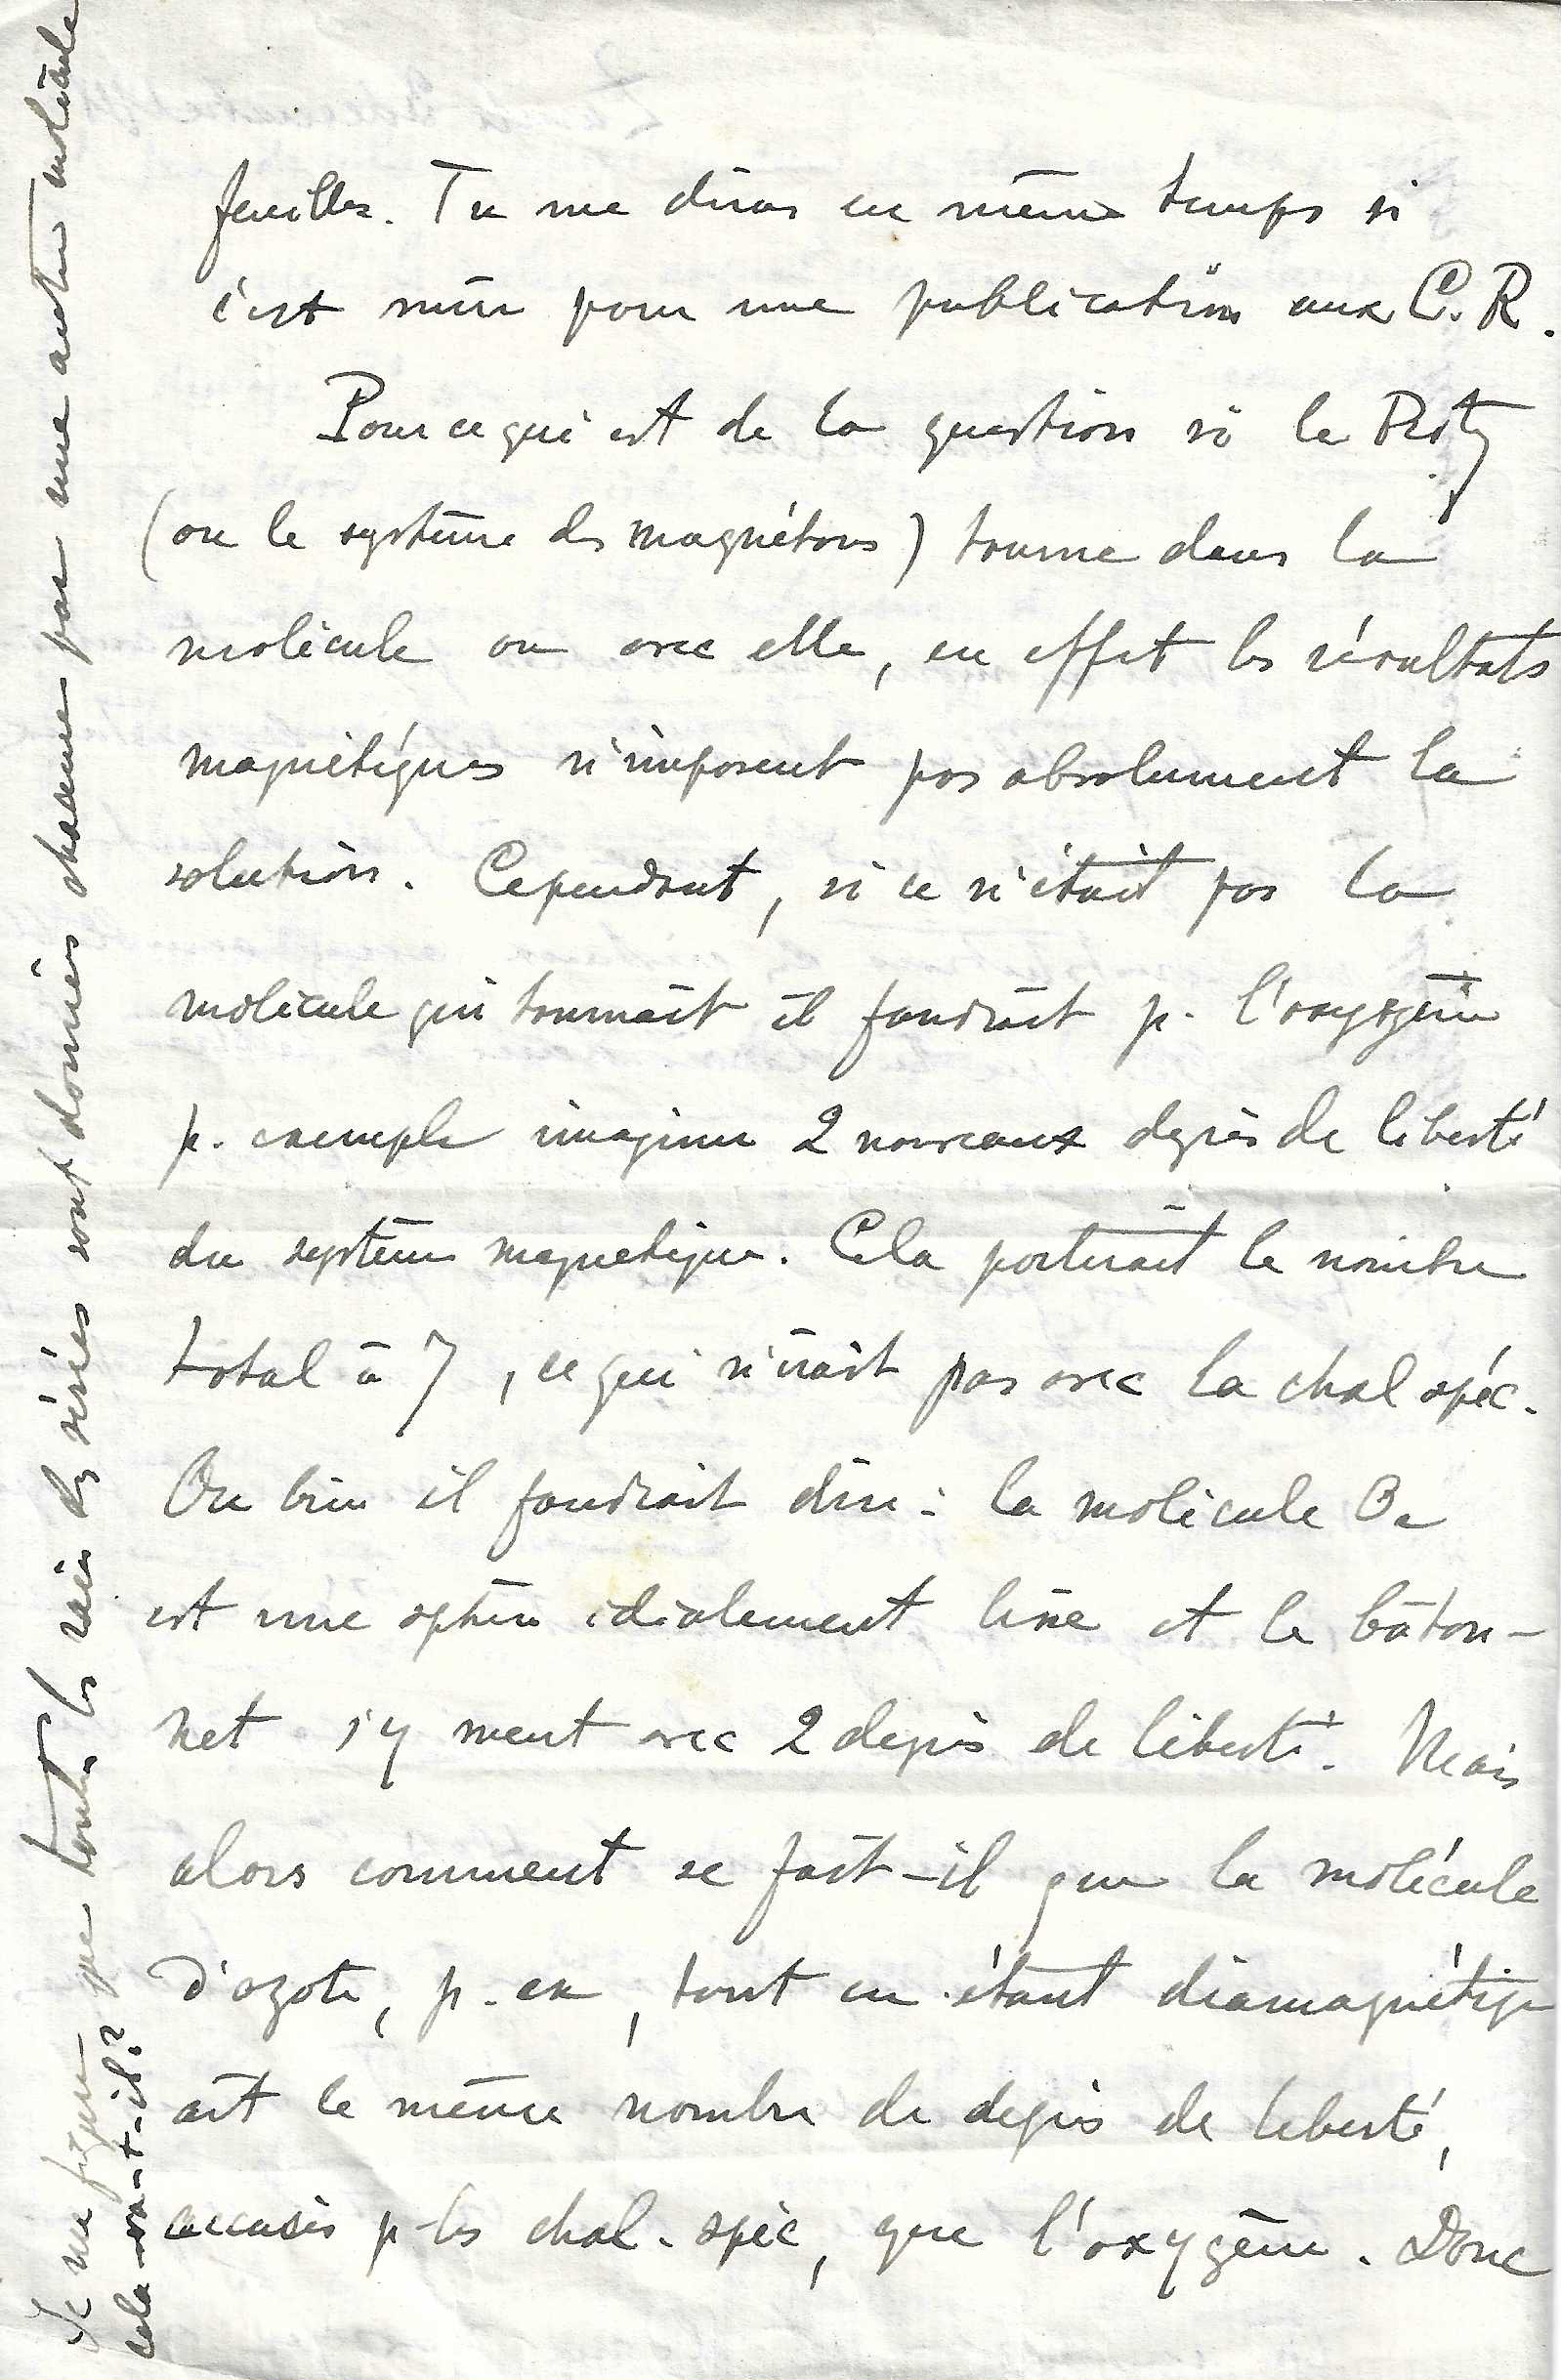 feuilles. Tu me diras en même temps si
c'est mûr pour une publication aux C.R.
Pour ce qui est de la question si le
(ou le système des magnétons) tourne dans la
molécule ou avec elle, en effet les résultats
magnétiques n'imposent pas absolument la
solution. Cependant, si ce n'était pas la
molécule qui tournait il faudrait p. l'oxygène
p. exemple imaginer 2 nouveaux degrés de liberté
du système magnétique. Cela porterait le nombre
total à 7, ce qui n'irait pas avec la chal spéc.
Ou bien il faudrait dire : la molécule O2
est une sphère idéalement lisse et le bâton-
net s'y meut avec 2 degrés de liberté. Mais
alors comment se fait-il que la molécule
d'azote, p. ex, tout en étant diamagnétique
ait le même nombre de degrés de liberté,
accusés p. les chal. spéc, que l'oxygène. Donc
Je me figure que toutes les raies des séries sont données chacune par une autre molécule
cela va-t-il?